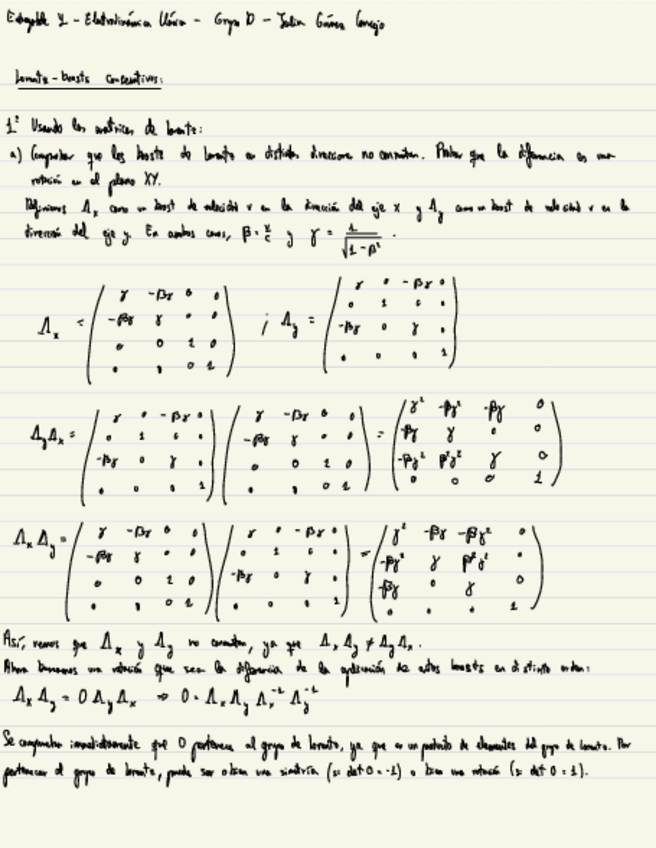 Entregable 1 - Electrodinámica Clásica - Grupo D - Julia Gómez Conejo
Lorentz-boosts consecutivos:
1º Usando las matrices de Lorentz:
a) Comprobar que los boosts de Lorentz en distintas direcciones no conmutan. Probar que la diferencia es una
rotación en el plano XY.
Definimos Λx como un boost de velocidad v en la dirección del eje x y Λy como un boost de velocidad v en la
dirección del eje y. En ambos casos, β = v/c y γ = 1/√(1-β²).
Λx = ( γ -βγ 0 0 ; -βγ γ 0 0 ; 0 0 1 0 ; 0 0 0 1 ) ; Λy = ( γ 0 -βγ 0 ; 0 1 0 0 ; -βγ 0 γ 0 ; 0 0 0 1 )
ΛyΛx = ( γ 0 -βγ 0 ; 0 1 0 0 ; -βγ 0 γ 0 ; 0 0 0 1 ) ( γ -βγ 0 0 ; -βγ γ 0 0 ; 0 0 1 0 ; 0 0 0 1 ) = ( γ² -βγ² -βγ 0 ; -βγ γ 0 0 ; -βγ² β²γ² γ 0 ; 0 0 0 1 )
ΛxΛy = ( γ -βγ 0 0 ; -βγ γ 0 0 ; 0 0 1 0 ; 0 0 0 1 ) ( γ 0 -βγ 0 ; 0 1 0 0 ; -βγ 0 γ 0 ; 0 0 0 1 ) = ( γ² -βγ -βγ² 0 ; -βγ² γ β²γ² 0 ; -βγ 0 γ 0 ; 0 0 0 1 )
Así, vemos que Λx y Λy no conmutan, ya que ΛxΛy ≠ ΛyΛx.
Ahora buscamos una rotación que sea la diferencia de la aplicación de estos boosts en distinto orden:
ΛxΛy = O ΛyΛx ⇒ O = ΛxΛyΛx⁻¹Λy⁻¹
Se comprueba inmediatamente que O pertenece al grupo de Lorentz, ya que es un producto de elementos del grupo de Lorentz. Por
pertenecer al grupo de Lorentz, puede ser o bien una simetría (si det O = -1) o bien una rotación (si det O = 1).